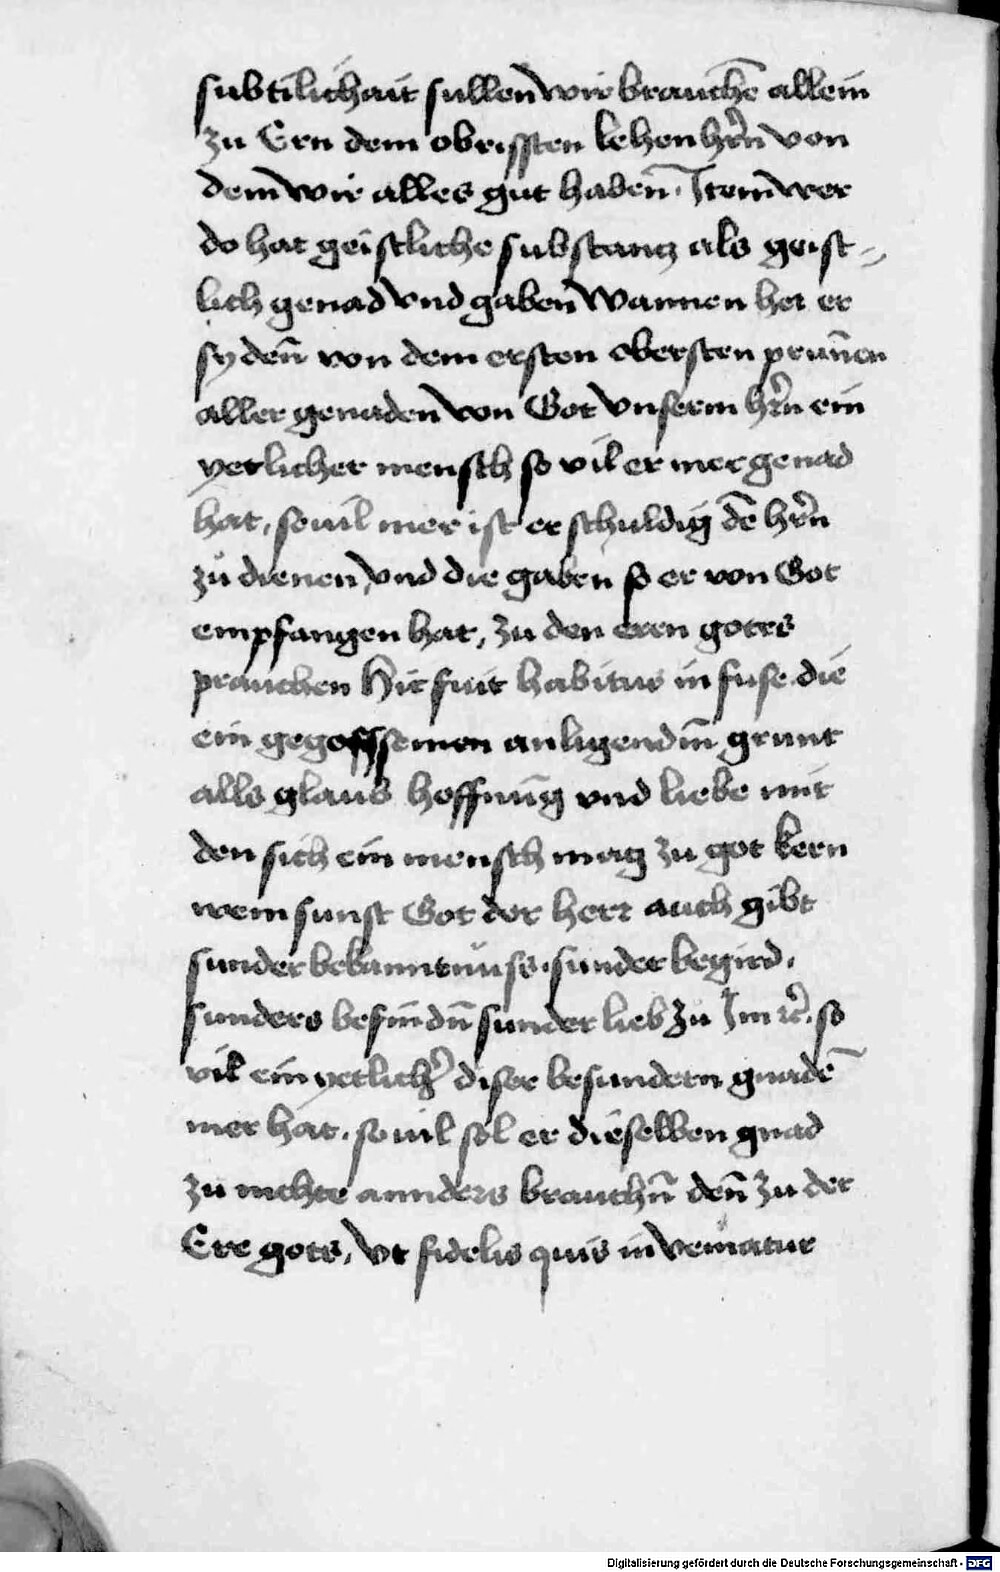 subtilichait sullen wir brauchē allein
zu Ern dem obrissten lehenhr̄n von
dem wir alles gut haben̄. Item wer
do hat geistliche substantz als geist=
lich genad vnd gaben Wannen het er
sy den̄ von dem ersten obersten prun̄en
aller genaden von Got vnserm hr̄n ein
yetlicher mensch so vil er mer genad
hat, souil mer ist er schuldig dē hr̄n
zů dienen, vnd die gaben so er von Got
empfangen hat, zu den eren gotes
prauchen Hic fuit habitus infuse die
ein gegossemen anligend in̄ grunt
alls glaub hoffnūg vnd liebe mit
den sich ein mensch mag zu got kern
wem sunst Got der herr auch gibt
sunder bekanntnuss. sunder begird.
sunders befindn̄ sunder lieb zu Im ꝛc̄. so
vil ein yetlichr̄ diser besundern gnadē
mer hat. souil sol er dieselben gnad
zu nichte annders brauchn̄ den̄ zu der
Ere gots, vt fidelis quis inveniatur
Digitalisierung gefördert durch die Deutsche Forschungsgemeinschaft - DFG